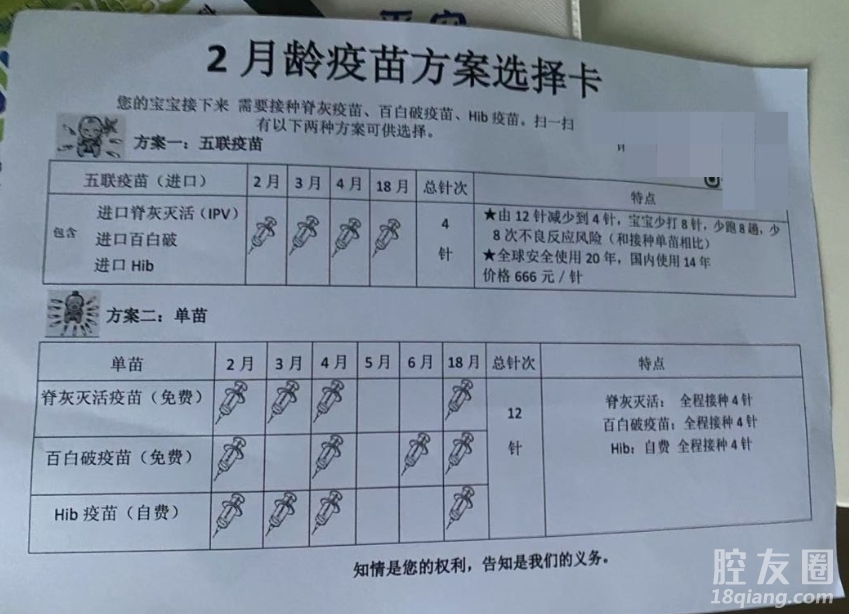 2月龄疫苗方案选择卡
您的宝宝接下来 需要接种脊灰疫苗、百白破疫苗、Hib疫苗。扫一扫
有以下两种方案可供选择。
方案一：五联疫苗
五联疫苗（进口） 2月 3月 4月 18月 总针次 特点
包含 进口脊灰灭活（IPV） 进口百白破 进口Hib
4针
★由12针减少到4针，宝宝少打8针，少跑8趟，少
8次不良反应风险（和接种单苗相比）
★全球安全使用20年，国内使用14年
价格666元/针
方案二：单苗
单苗 2月 3月 4月 5月 6月 18月 总针次 特点
脊灰灭活疫苗（免费）
百白破疫苗（免费）
Hib疫苗（自费）
12针
脊灰灭活： 全程接种4针
百白破疫苗：全程接种4针
Hib：自费 全程接种4针
知情是您的权利，告知是我们的义务。
腔友圈
18qiang.com